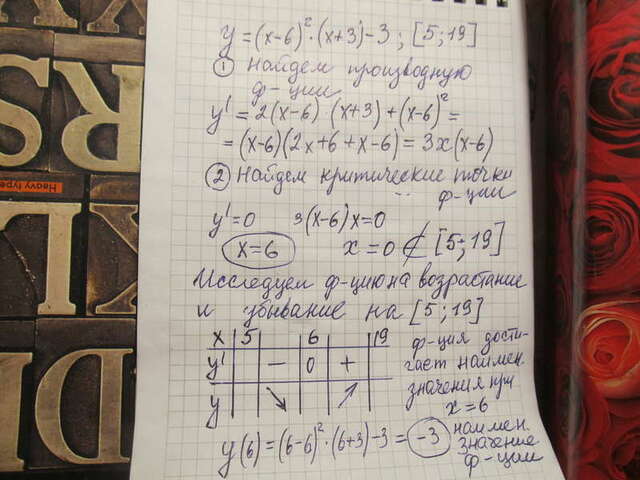 y = (x-6)²·(x+3)-3 ; [5;19]
① Найдем производную
ф-ции
y' = 2(x-6)·(x+3)+(x-6)² =
= (x-6)(2x+6+x-6) = 3x(x-6)
② Найдем критические точки
ф-ции
y'=0 3(x-6)x=0
x=6 x=0 ⊄ [5;19]
Исследуем ф-цию на возрастание
и убывание на [5;19]
x 5 6 19
y' − 0 +
y ↘ ↗
ф-ция дости-
гает наимен.
значения при
x=6
y(6) = (6-6)²·(6+3)-3 = -3 наимен.
значение
ф-ции
Heavy type